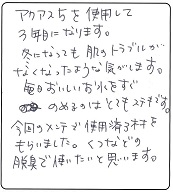 アクアス5を使用して
3年目になります。
冬になっても肌のトラブルが
なくなったような気がします。
毎日おいしいお水をすぐ
のめるのはとてもステキです。
今回のメンテで使用済ろ材を
もらいました。くつなどの
脱臭で使いたいと思います。